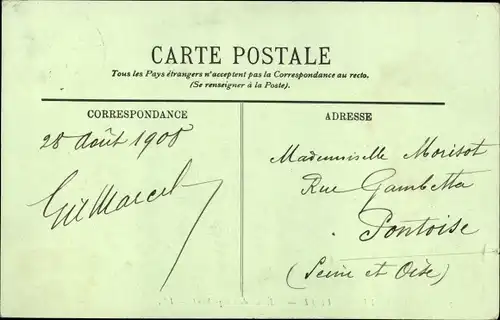 CARTE POSTALE
Tous les Pays étrangers n'acceptent pas la Correspondance au recto.
(Se renseigner à la Poste).
CORRESPONDANCE
28 Août 1908
Marcel
ADRESSE
Mademoiselle Morisot
Rue Gambetta
Pontoise
(Seine et Oise)